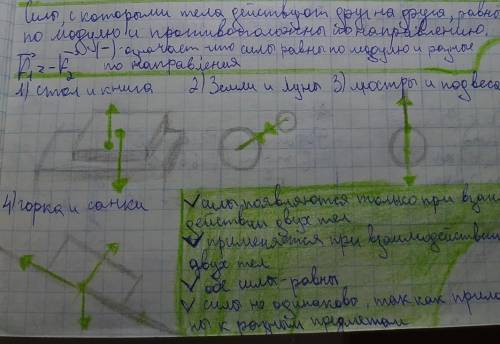 Силы, с которыми тела действуют друг на друга, равны
по модулю и противоположны по направлению.
F₁ = -F₂ (-) - означает что силы равны по модулю и разные
по направления
1) стол и книга 2) Земли и Луны 3) люстры и подвеса
4) горка и санки
✓ силы появляются только при взаи
действии двух тел
✓ применяется при взаимодействии
двух тел
✓ обе силы - равны
✓ силы не одинаково, так как прило
ны к разным предметам